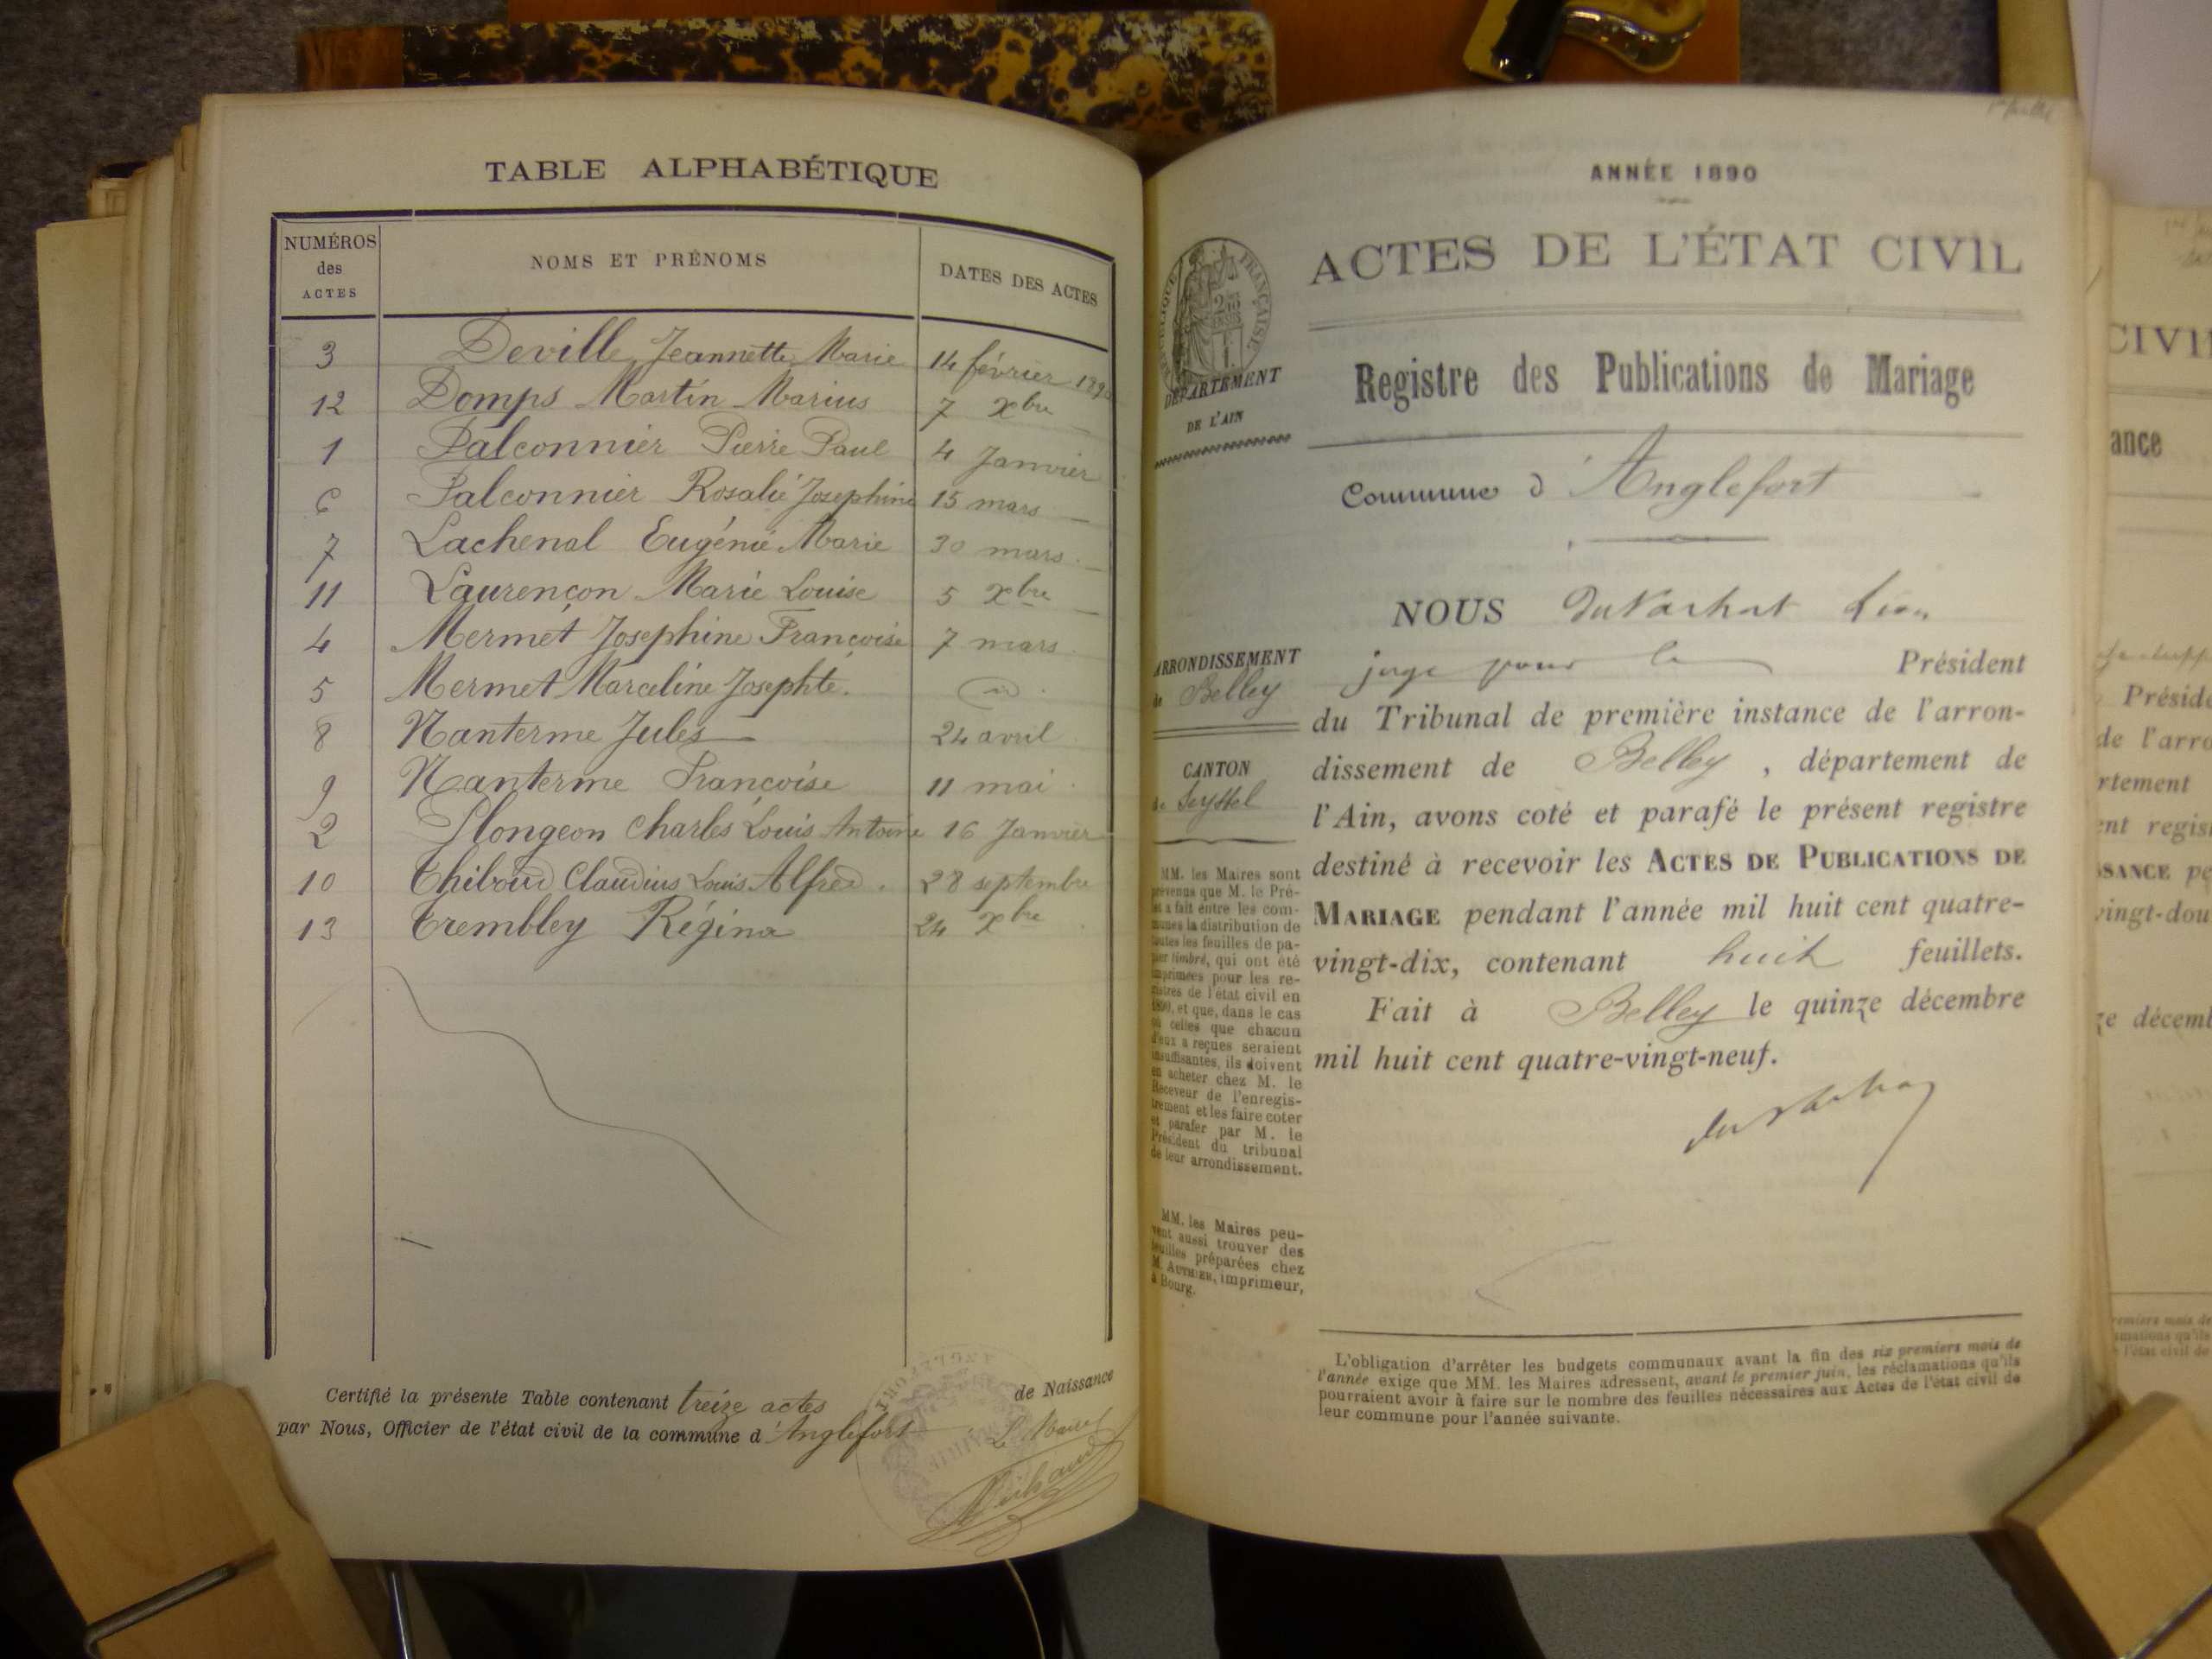 TABLE ALPHABÉTIQUE
NUMÉROS des ACTES NOMS ET PRÉNOMS DATES DES ACTES
3 Deville Jeannette Marie 14 février 1890
12 Domps Martin Marius 7 xbre
1 Falconnier Pierre Paul 4 Janvier
6 Falconnier Rosalie Josephine 15 mars
7 Lachenal Eugénie Marie 30 mars
11 Laurençon Marie Louise 5 xbre
4 Mermet Josephine Françoise 7 mars
5 Mermet Marceline Josephte
8 Nanterme Jules 24 avril
9 Nanterme Françoise 11 mai
2 Plongeon Charles Louis Antoine 16 Janvier
10 Thiboud Claudius Louis Alfred 28 septembre
13 Trembley Régina 24 xbre
Certifié la présente Table contenant treize actes de Naissance
par Nous, Officier de l'état civil de la commune d'Anglefort
Le Maire
ANNÉE 1890
ACTES DE L'ÉTAT CIVIL
RÉPUBLIQUE FRANÇAISE
DÉPARTEMENT
DE L'AIN
Registre des Publications de Mariage
Commune d'Anglefort
NOUS
juge pour le Président
du Tribunal de première instance de l'arron-
dissement de Belley, département de
l'Ain, avons coté et parafé le présent registre
destiné à recevoir les ACTES DE PUBLICATIONS DE
MARIAGE pendant l'année mil huit cent quatre-
vingt-dix, contenant huit feuillets.
Fait à Belley le quinze décembre
mil huit cent quatre-vingt-neuf.
ARRONDISSEMENT
de Belley
CANTON
de Seyssel
MM. les Maires sont
prévenus que M. le Pré-
fet a fait entre les com-
munes la distribution de
toutes les feuilles de pa-
pier timbré, qui ont été
imprimées pour les re-
gistres de l'état civil en
1890, et que, dans le cas
où celles que chacun
d'eux a reçues seraient
insuffisantes, ils doivent
en acheter chez M. le
Receveur de l'enregis-
trement et les faire coter
et parafer par M. le
Président du tribunal
de leur arrondissement.
MM. les Maires peu-
vent aussi trouver des
feuilles préparées chez
M. AUTHIER, imprimeur,
à Bourg.
L'obligation d'arrêter les budgets communaux avant la fin des six premiers mois de
l'année exige que MM. les Maires adressent, avant le premier juin, les réclamations qu'ils
pourraient avoir à faire sur le nombre des feuilles nécessaires aux Actes de l'état civil de
leur commune pour l'année suivante.